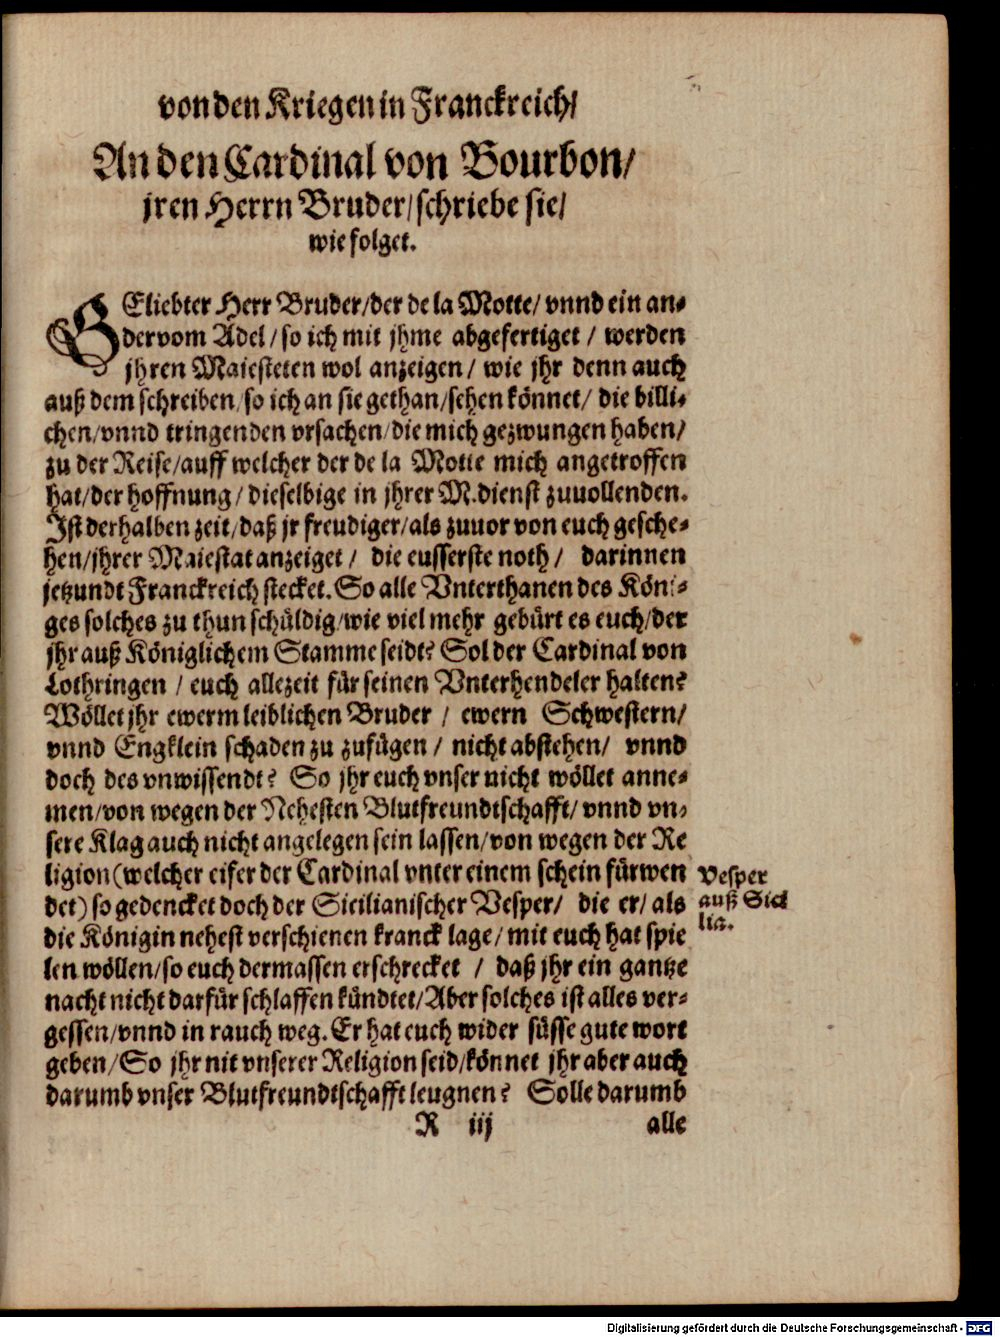 von den Kriegen in Franckreich/
An den Cardinal von Bourbon/
jren Herrn Bruder/schriebe sie/
wie folget.
GEliebter Herr Bruder/der de la Motte/ vnnd ein an-
der vom Adel/so ich mit jhme abgefertiget / werden
jhren Maiesteten wol anzeigen/ wie jhr denn auch
auß dem schreiben/so ich an sie gethan/sehen könnet/ die billi-
chen/vnnd tringenden vrsachen/die mich gezwungen haben/
zu der Reise/auff welcher der de la Motte mich angetroffen
hat/der hoffnung/dieselbige in jhrer M.dienst zuuollenden.
Ist derhalben zeit/daß jr freudiger/als zuuor von euch gesche-
hen/jhrer Maiestat anzeiget / die eusserste noth/ darinnen
jetzundt Franckreich stecket. So alle Vnterthanen des Köni-
ges solches zu thun schüldig/wie viel mehr gebürt es euch/der
jhr auß Königlichem Stamme seidt? Sol der Cardinal von
Lothringen / euch allezeit für seinen Vnterhendeler halten?
Wöllet jhr ewerm leiblichen Bruder / ewern Schwestern/
vnnd Engklein schaden zu zufügen / nicht abstehen/ vnnd
doch des vnwissendt? So jhr euch vnser nicht wöllet anne-
men/von wegen der Nehesten Blutfreundtschafft/ vnnd vn-
sere Klag auch nicht angelegen sein lassen/von wegen der Re
ligion(welcher eifer der Cardinal vnter einem schein fürwen
det) so gedencket doch der Sicilianischer Vesper/ die er/ als
die Königin nehest verschienen kranck lage/mit euch hat spie
len wöllen/so euch dermassen erschrecket / daß jhr ein gantze
nacht nicht darfür schlaffen kündtet/Aber solches ist alles ver-
gessen/vnnd in rauch weg. Er hat euch wider süsse gute wort
geben/So jhr nit vnserer Religion seid/könnet jhr aber auch
darumb vnser Blutfreundtschafft leugnen? Solle darumb
Vesper
auß Sici
lia.
R iij alle
Digitalisierung gefördert durch die Deutsche Forschungsgemeinschaft - DFG